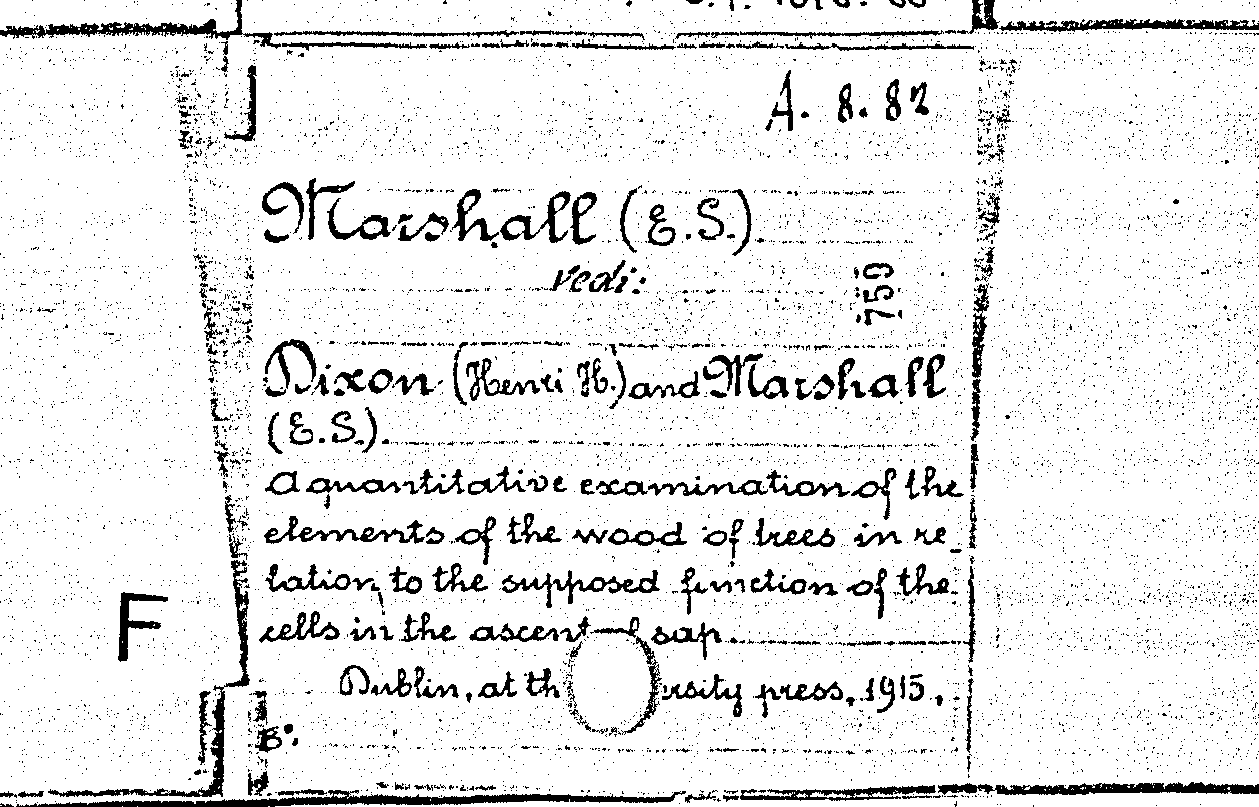 A. 8. 82
Marshall (E.S.).
vedi:
759
Dixon (Henri H.) and Marshall
(E.S.).
A quantitative examination of the
elements of the wood of trees in re_
lation to the supposed function of the
cells in the ascent f sap.
Dublin, at th rsity press, 1915,
8°.
F